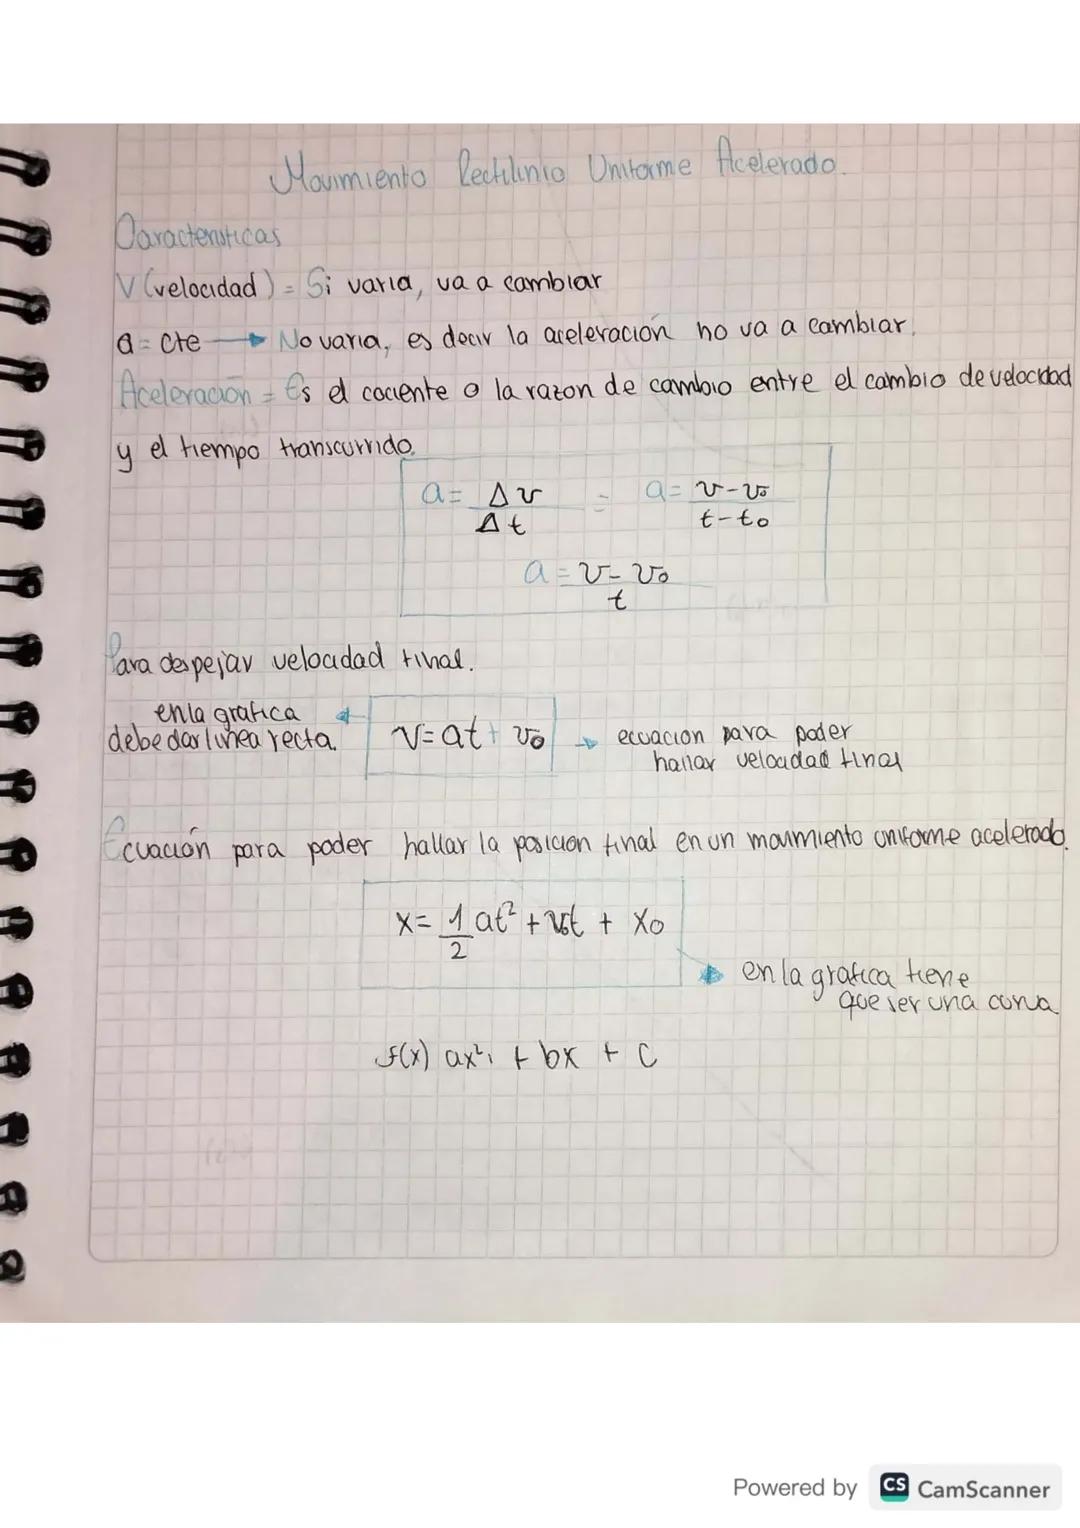 Movimiento Rectilinio Uniforme Acelerado.
Caracteristicas
V (velocidad) = Si varia, va a cambiar
a = cte → No varia, es decir la aceleración no va a cambiar.
Aceleración = Es el cociente o la razon de cambio entre el cambio de velocidad
y el tiempo transcurrido.
a = Δv / Δt = a = v - v₀ / t - t₀
a = v - v₀ / t
Para despejar velocidad final.
en la grafica
debe dar linea recta.
v = at + v₀ → ecuacion para poder
hallar velocidad final
Ecuación para poder hallar la posicion final en un movimiento uniforme acelerado.
x = 1/2 at² + v₀t + x₀
→ en la grafica tiene
que ser una curva
f(x) ax² + bx + c
Powered by CS CamScanner